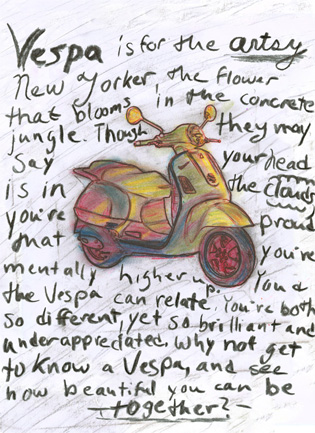 Vespa is for the artsy
New Yorker the flower
that blooms in the concrete
jungle. Though they may
say your head
is in the clouds
you're proud
that you're
mentally higher up. You &
the Vespa can relate. You're both
so different, yet so brilliant and
underappreciated, why not get
to know a Vespa, and see
how beautiful you can be
-together?-